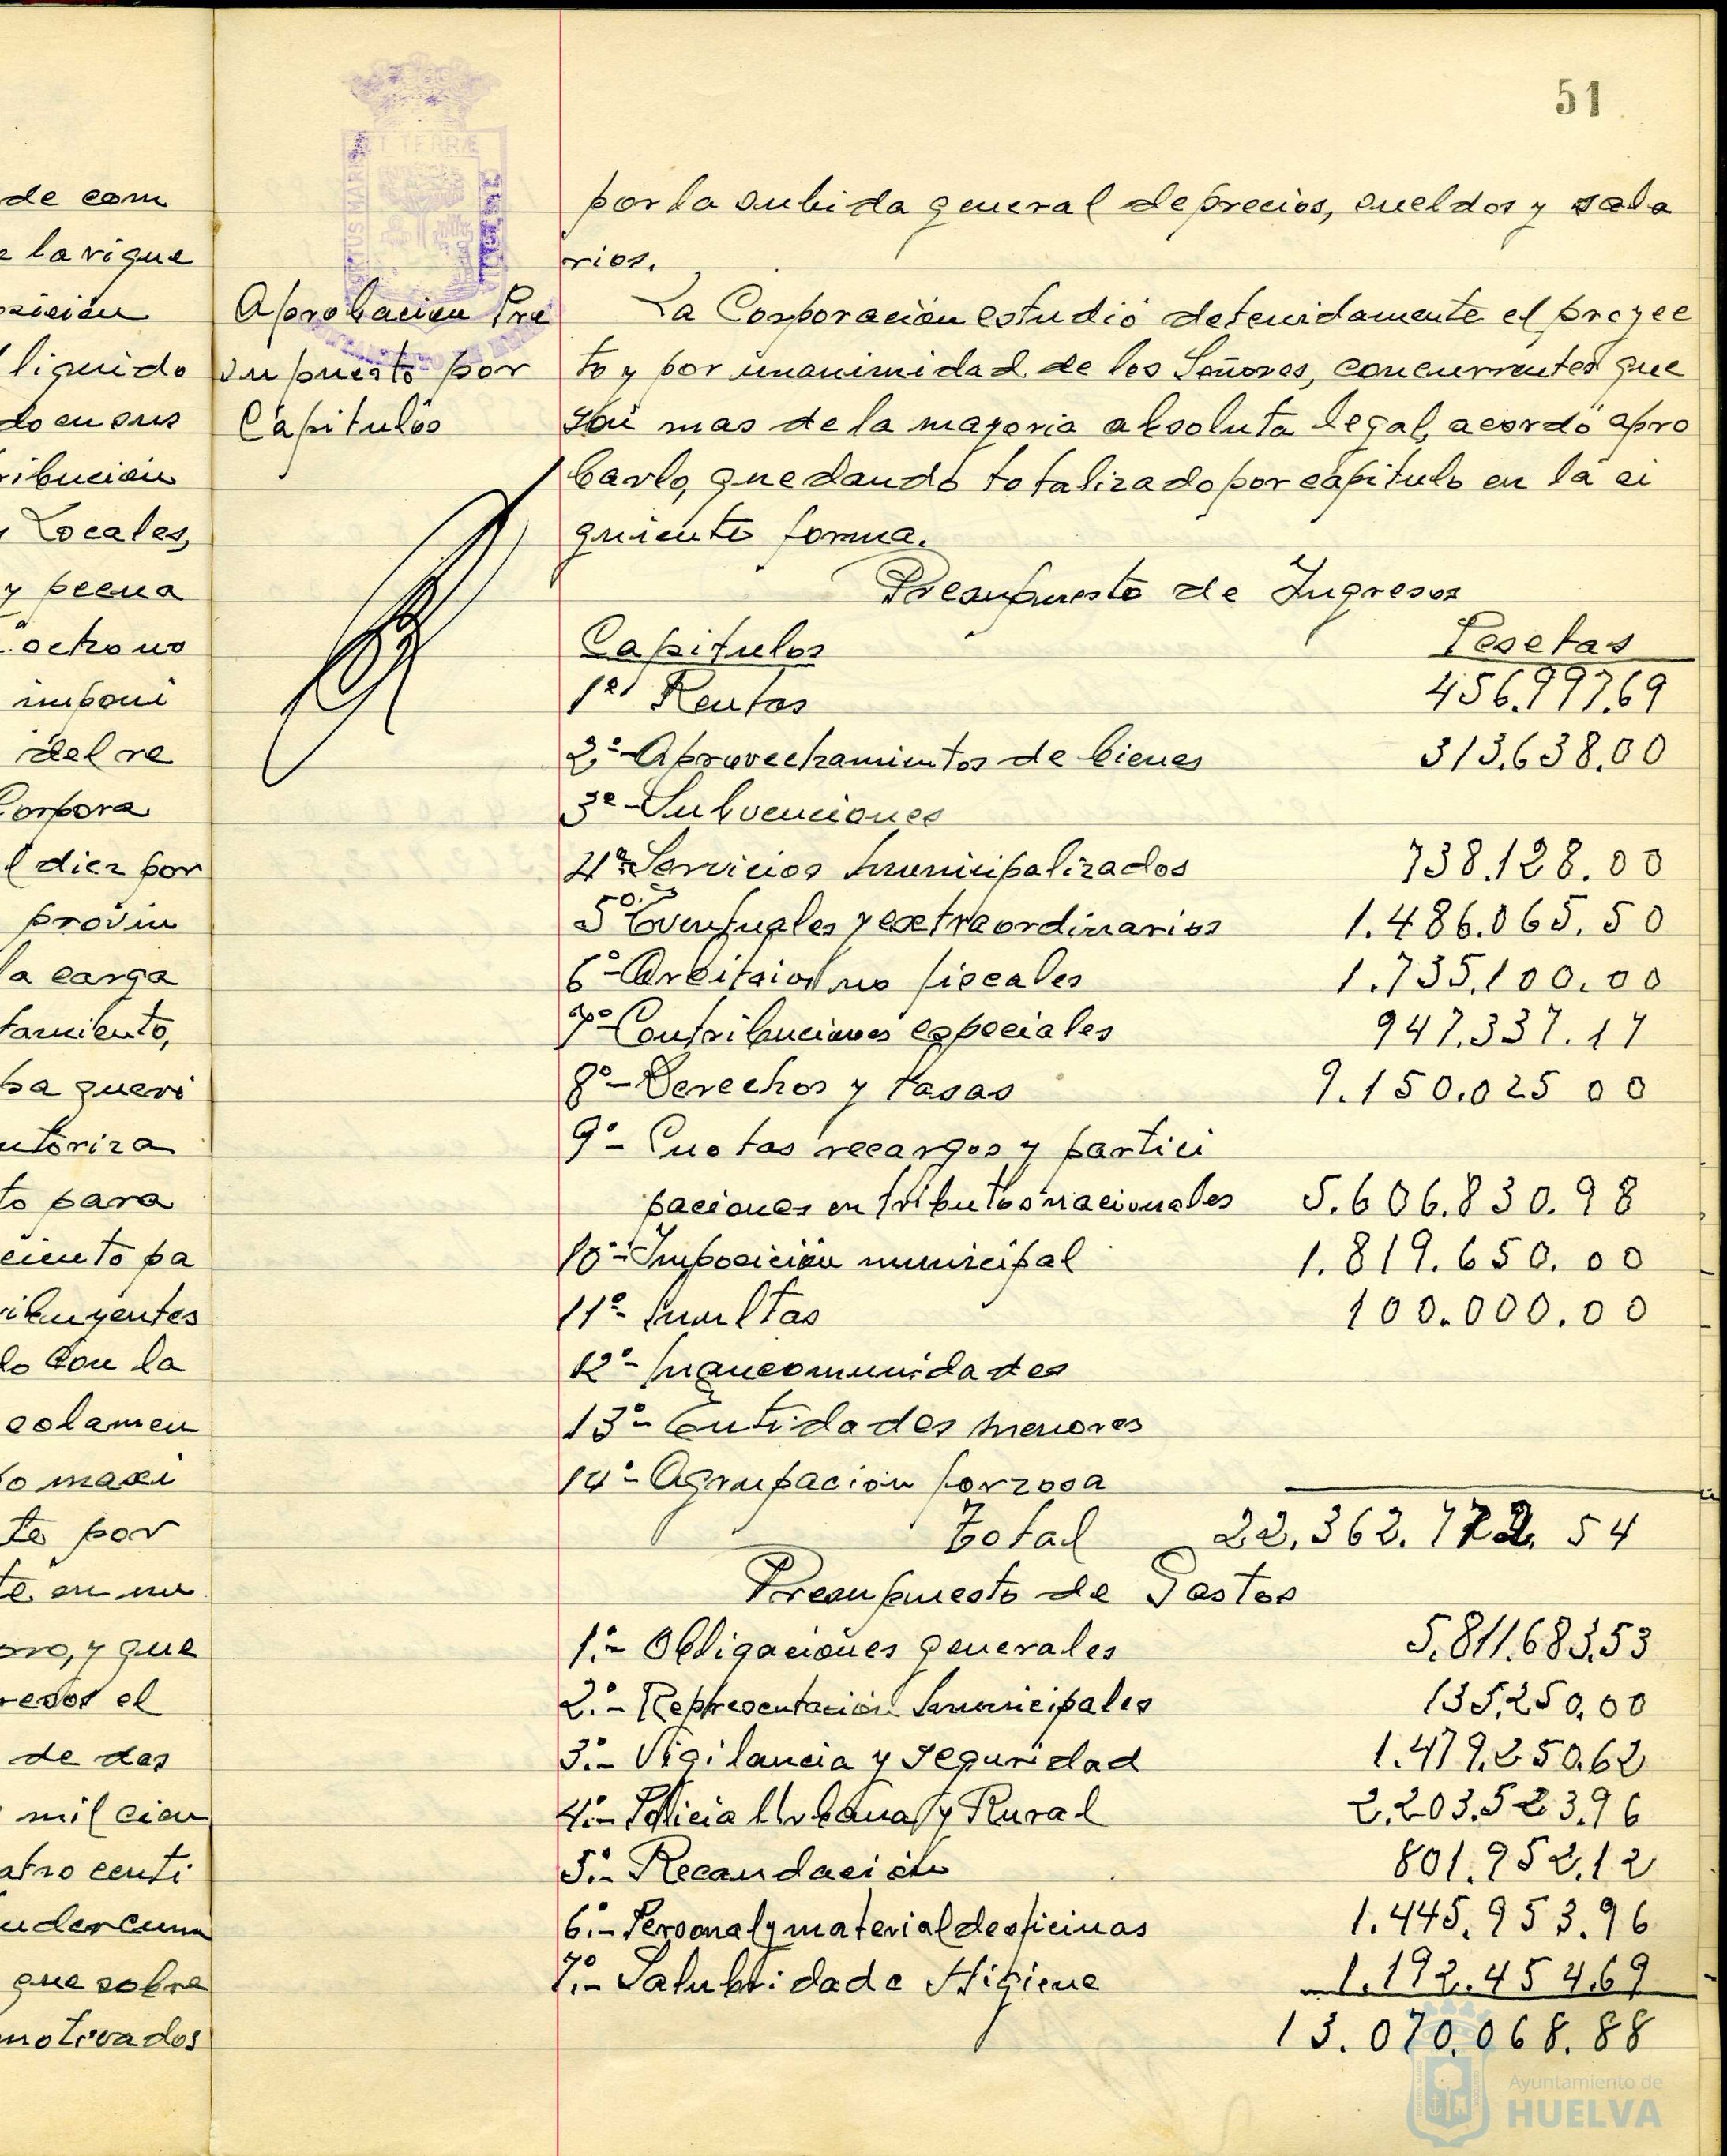 51
de com
la vigue
sicion
liquido
do en sus
ribucion
y Locales,
y pecua
ochono
imponi
del re
Corpora
l diez por
provin
la carga
tamiento,
ba queri
utoriza
to para
ciento pa
ribuyentes
lo con la
solamen
o maxi
te por
te en nu
oro, y que
resos el
de dos
mil cien
atro centi
que sobre
motivados
Aprobacion Pre
supuesto por
Capitulos
por la subida general de precios, sueldos y sala
rios.
La Corporación estudió detenidamente el proyec
to y por unanimidad de los Señores, concurrentes que
son mas de la mayoria absoluta legal, acordó apro
barlo, quedando totalizado por capitulo en la si
guiente forma.
Presupuesto de Ingresos
Capitulos Pesetas
1º Rentas 456.997.69
2º- Aprovechamientos de bienes 313.638.00
3º- Subvenciones
4º- Servicios municipalizados 738.128.00
5º- Eventuales y extraordinarios 1.486.065.50
6º- Arbitrios no fiscales 1.735.100.00
7º- Contribuciones especiales 947.337.17
8º- Derechos y tasas 9.150.025 00
9º- Cuotas recargos y partici
paciones en tributos nacionales 5.606.830.98
10º- Imposición municipal 1.819.650.00
11º- Multas 100.000.00
12º- Mancomunidades
13º- Entidades menores
14º- Agrupación forzosa
Total 22.362.772.54
Presupuesto de Gastos
1º.- Obligaciones generales 5.811.683.53
2º.- Representación Municipales 135.250.00
3º.- Vigilancia y Seguridad 1.479.250.62
4º.- Policia Urbana y Rural 2.203.523.96
5º.- Recaudación 801.952.12
6º.- Personal y material de oficinas 1.445.953.96
7º.- Salubridad e Higiene 1.192.454.69
13.070.068.88
Ayuntamiento de
HUELVA